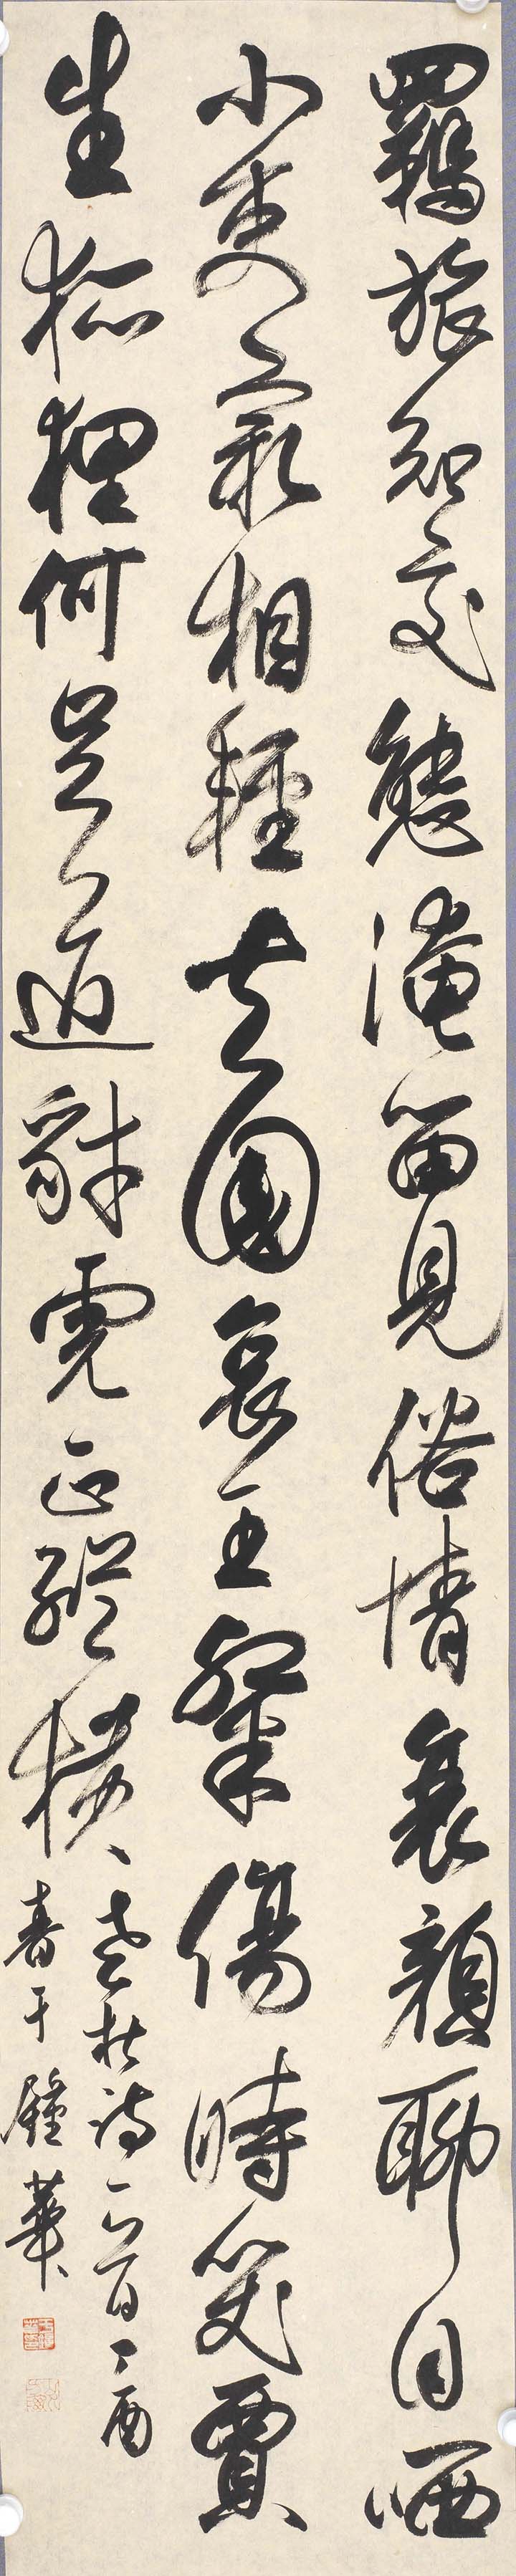 羈旅知交態淹留見俗情衰顏聊自哂
小吏最相輕去國哀王粲傷時哭賈
生狐狸何足道豺虎正縱橫
老杜詩一首丁酉
春于鐘華